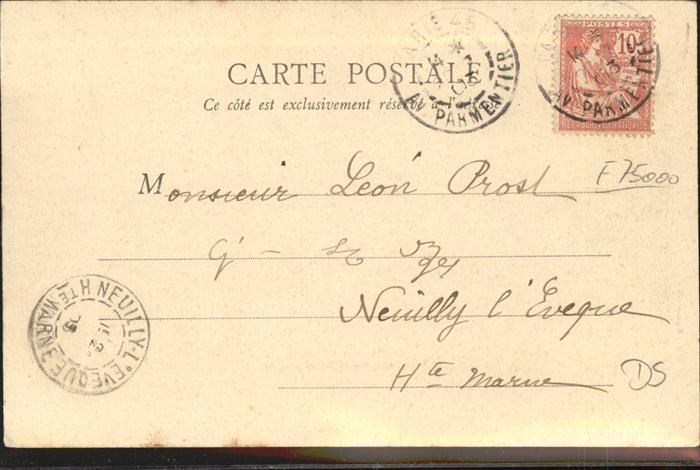 CARTE POSTALE
Ce côté est exclusivement réservé à l'adresse
PARIS 45
03
AV. PARMENTIER
POSTES
10
REPUBLIQUE FRANÇAISE
AV. PARMENTIER
F 75000
Monsieur Léon Prost
Neuilly l'Eveque
Hte Marne
DS
NEUILLY-L'EVEQUE
HTE MARNE
03